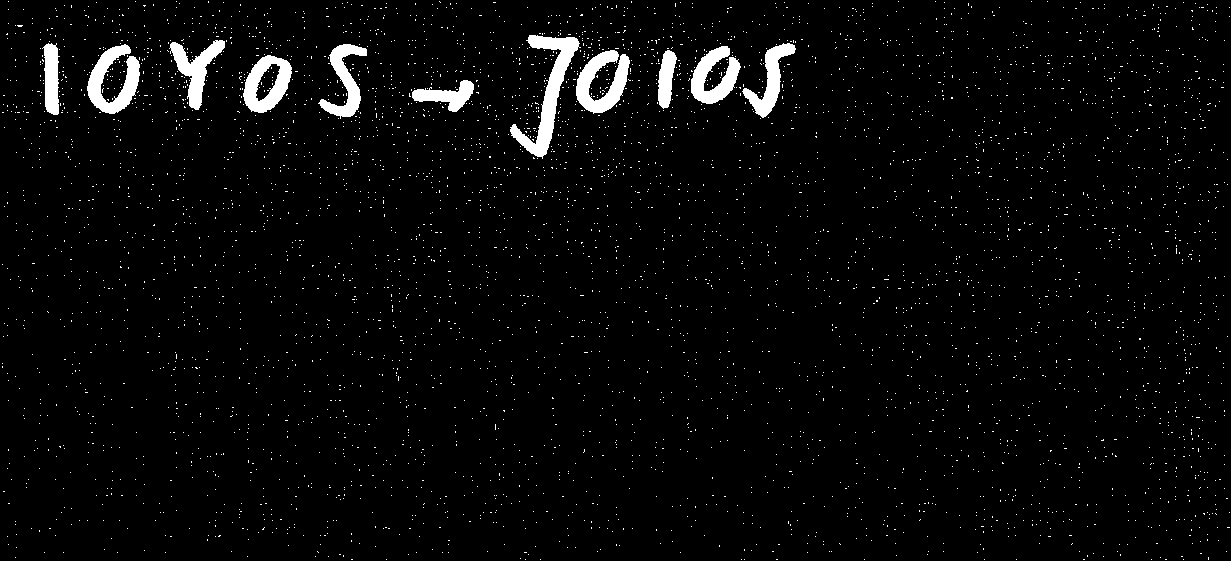 IOYOS → JOIOS